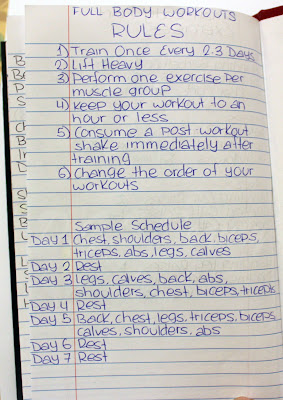 FULL BODY WORKOUTS
RULES
1) Train Once Every 2-3 Days
2) Lift Heavy
3) Perform one exercise per
muscle group
4) Keep your workout to an
hour or less
5) Consume a post workout
shake immediately after
training
6) Change the order of your
workouts
Sample Schedule
Day 1 Chest, shoulders, back, biceps,
triceps, abs, legs, calves
Day 2 Rest
Day 3 legs, calves, back, abs,
shoulders, chest, biceps, triceps
Day 4 Rest
Day 5 Back, chest, legs, triceps, biceps,
calves, shoulders, abs
Day 6 Rest
Day 7 Rest